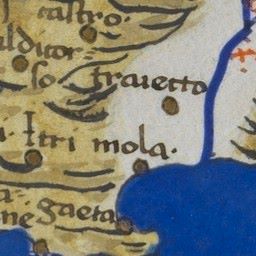 castro.
alditor
so traietto
Itri mola.
a.
ne gaeta